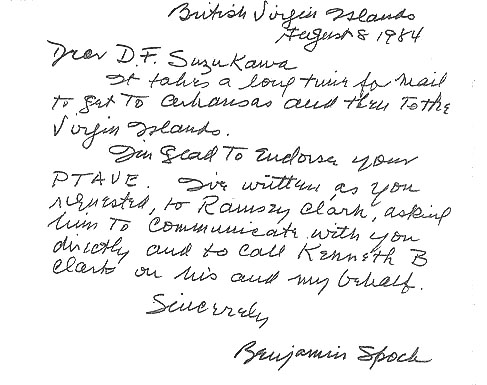 British Virgin Islands
August 8 1984
Dear D.F. Suzukawa
It takes a long time for mail
to get to Arkansas and then to the
Virgin Islands.
I'm glad to endorse your
PTAVE. I've written, as you
requested, to Ramsey Clark, asking
him to communicate with you
directly and to call Kenneth B
Clark on his and my behalf.
Sincerely
Benjamin Spock